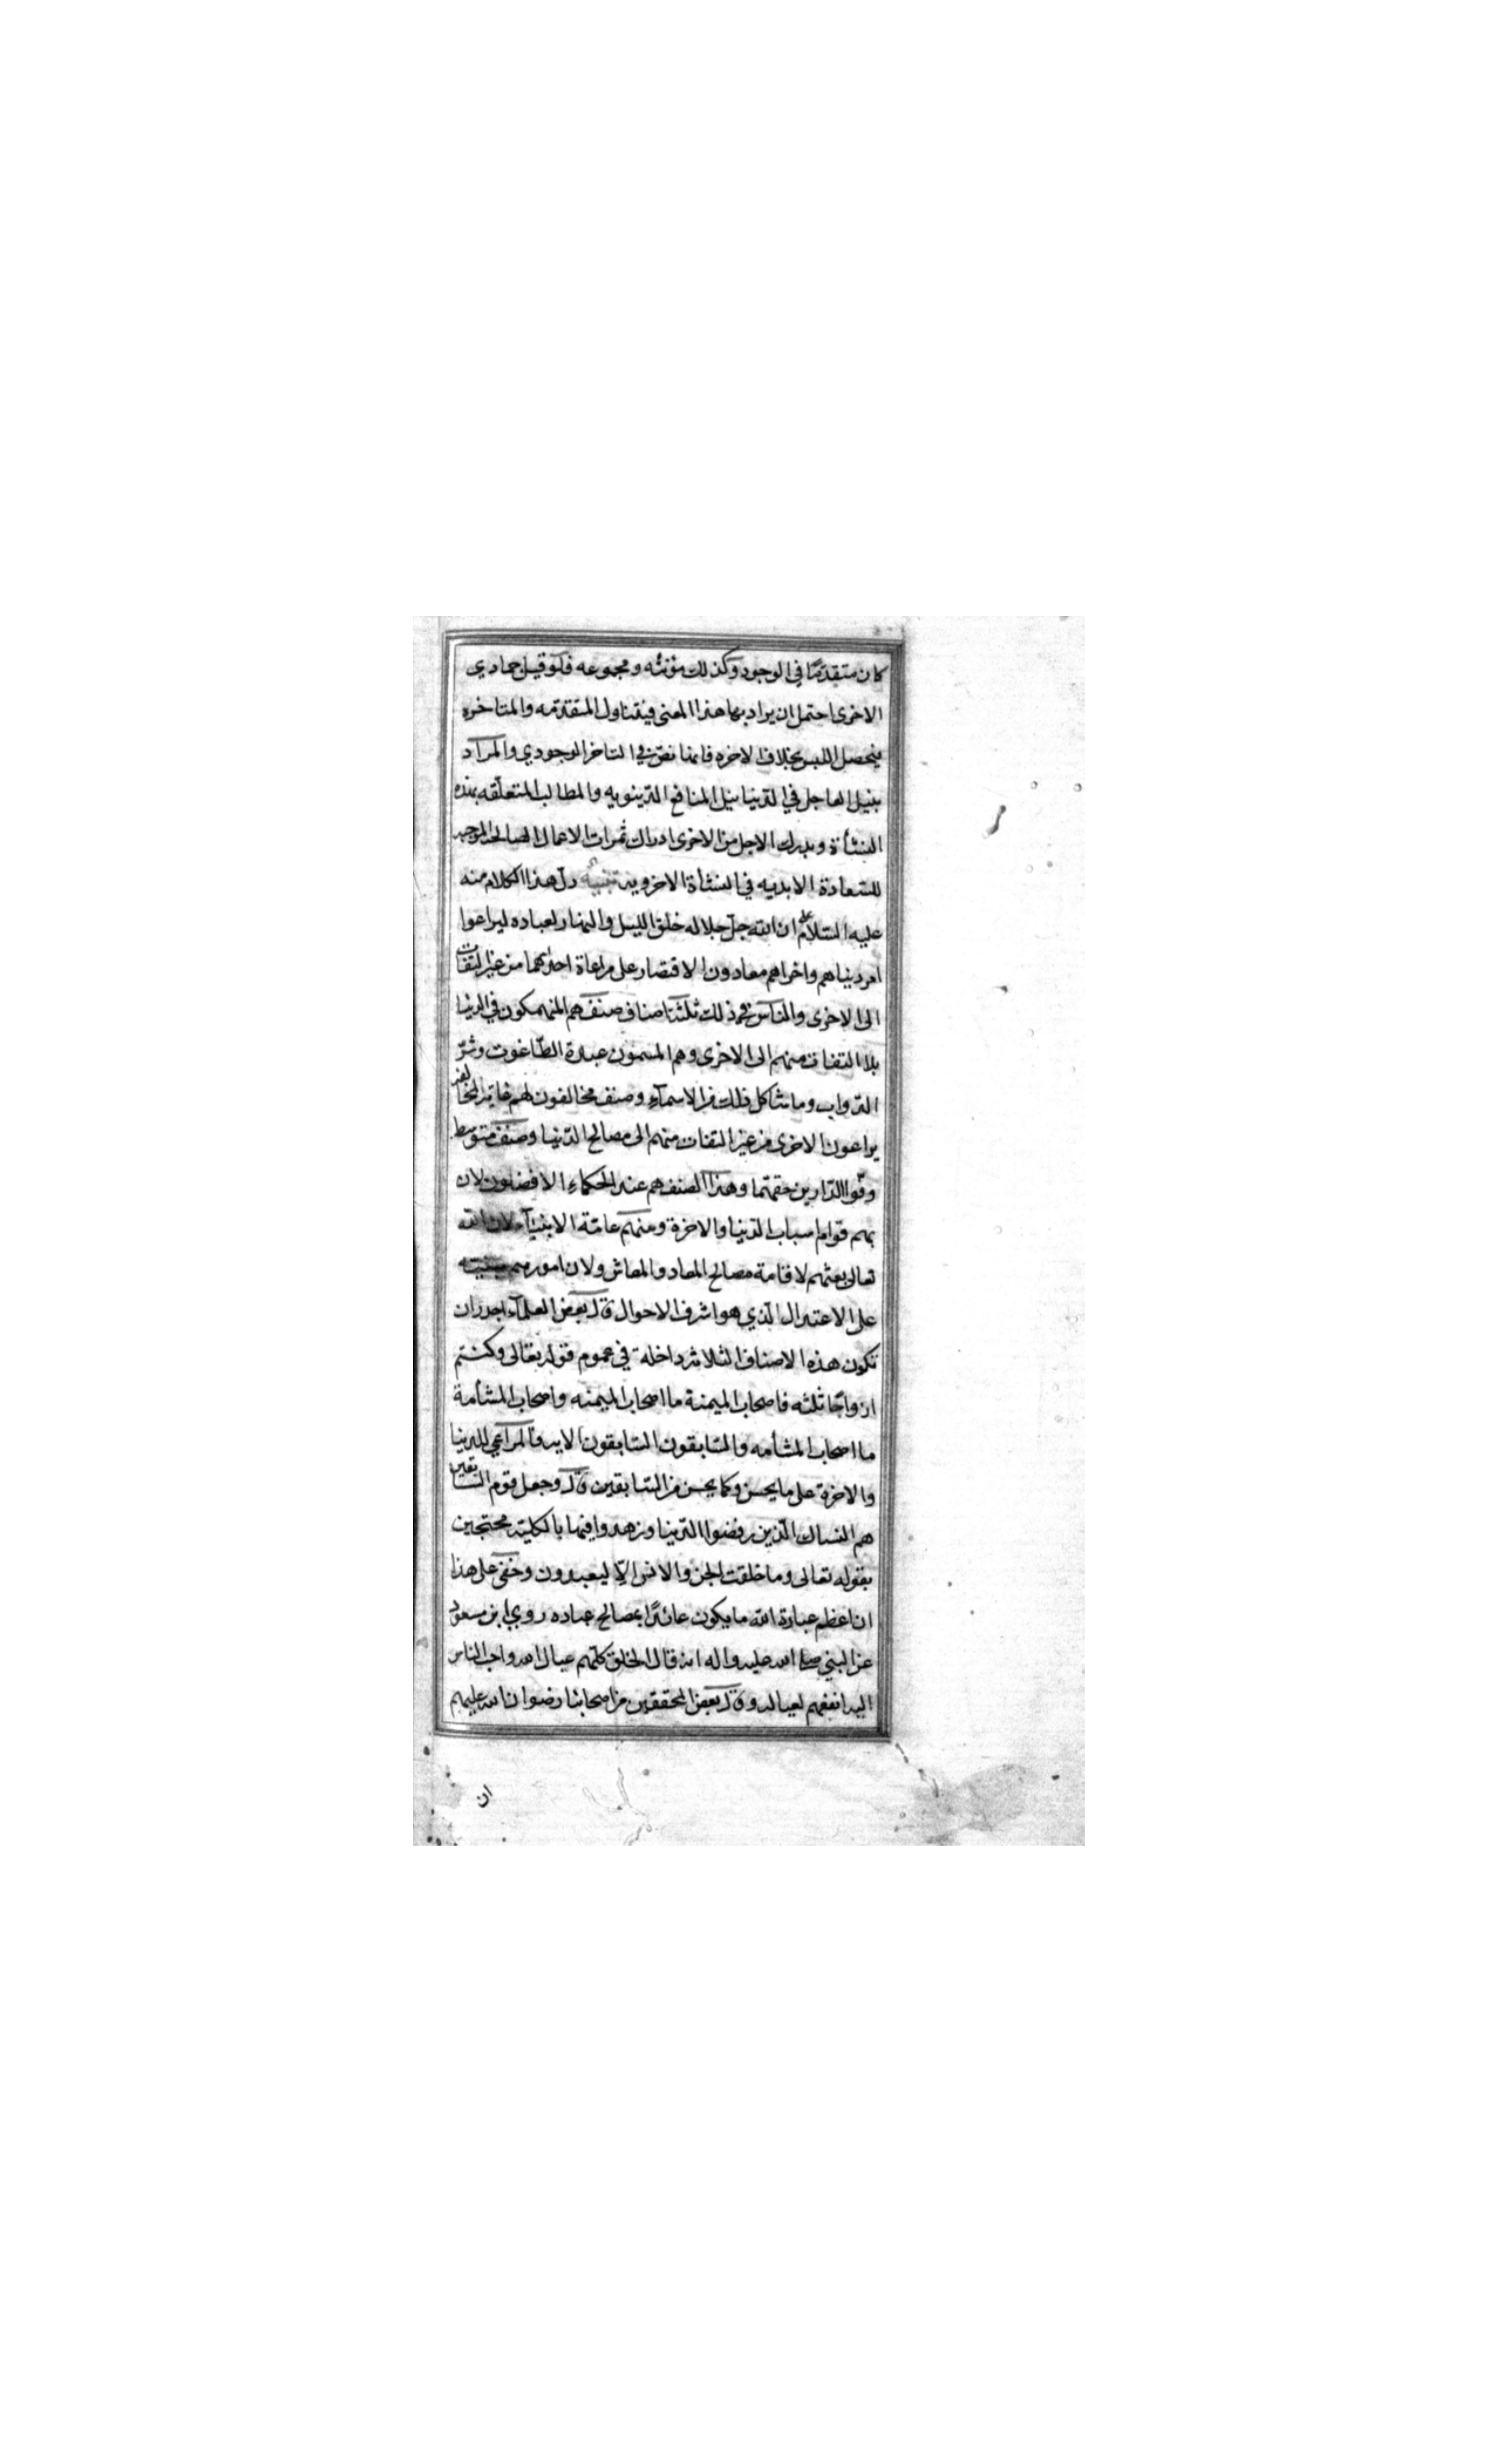 كان متقدمًا في الوجود وكذلك مؤنثه ومجموعه فلو قيل جمادي
الاخرى احتمل ان يراد بها هذا المعنى فيتناول المتقدمه والمتاخره
فيحصل اللبس بخلاف الاخره فانها نص في التاخر الوجودي والمراد
بنيل العاجل في الدنيا نيل المنافع الدنيويه والمطالب المتعلقه بهذه
النشأة وبدرك الاجل من الاخرى ادراك ثمرات الاعمال الصالحه الموجبه
للسعادة الابديه في النشأة الاخرويه تنبيه دل هذا الكلام منه
عليه السلام على ان الله جل جلاله خلق الليل والنهار لعباده ليراعوا
امر دينياهم واخراهم معا دون الاقتصار على مراعاة احديهما من غير التفات
الى الاخرى والناس في ذلك ثلثة اصناف صنف هم المنهمكون في الدنيا
بلا التفات منهم الى الاخرى وهم المسمون عبدة الطاغوت وشر
الدواب وما شاكل ذلك من الاسماء وصنف مخالفون لهم غاية المخالفه
يراعون الاخرى من غير التفات منهم الى مصالح الدنيا وصنف متوسط
وفوا الدارين حقهما وهذا الصنف هم عند الحكماء الافضلون لان
بهم قوام اسباب الدنيا والاخرة ومنهم عامة الانبياء لان الله
تعالى بعثهم لاقامة مصالح المعاد والمعاش ولان امورهم مبنيته
على الاعتدال الذي هو اشرف الاحوال قال بعض العلماء اجدر ان
تكون هذه الاصناف الثلاثه داخلة في عموم قوله تعالى وكنتم
ازواجًا ثلثه فاصحاب الميمنة ما اصحاب الميمنه واصحاب المشأمة
ما اصحاب المشأمه والسابقون السابقون الايه فالمراعي للدنيا
والاخرة على ما يحسن وكما يحسن من السابقين قال وجعل قوم السابقين
هم النساك الذين رفضوا الدنيا وزهدوا فيها بالكليته محتجين
بقوله تعالى وما خلقت الجن والانس الا ليعبدون وخفى على هذا
ان اعظم عبادة الله ما يكون عائدًا بمصالح عباده روي ابن مسعود
عن النبي صلى الله عليه واله انه قال الخلق كلهم عيال الله واحب الناس
اليه انفعهم لعياله وقال بعض المحققين من اصحابنا رضوان الله عليهم
ان